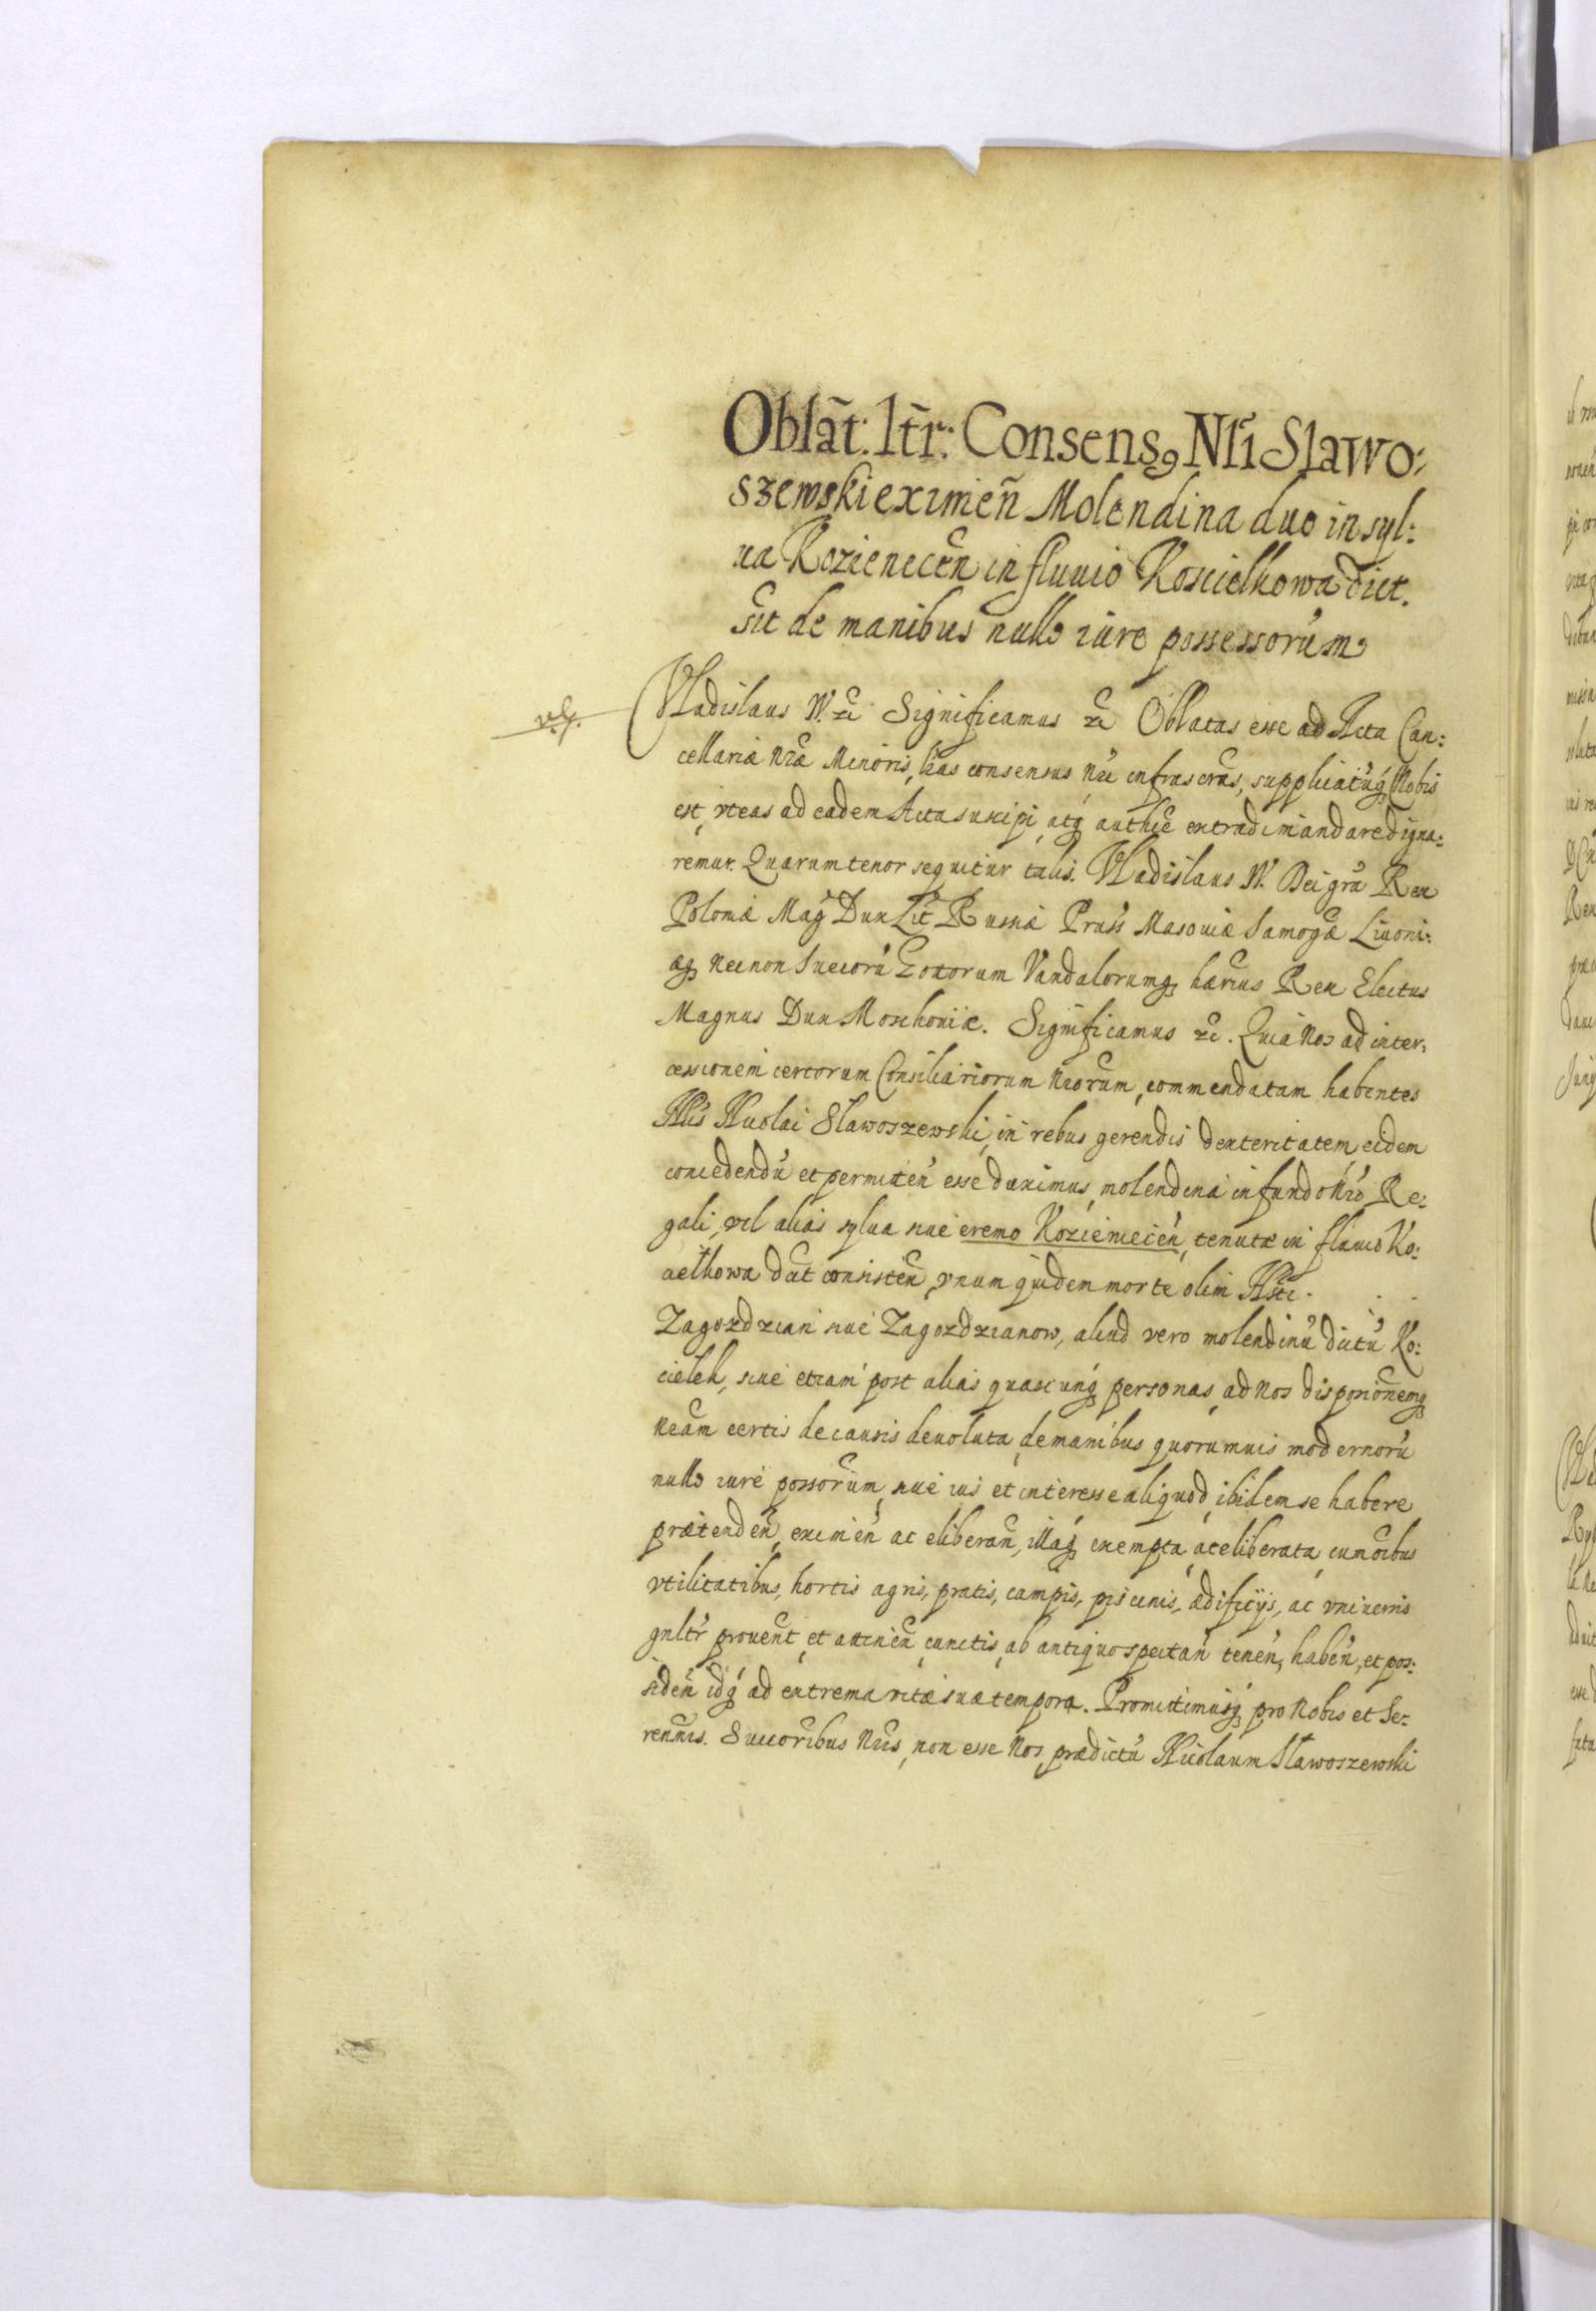 Oblãt: ltr̃: Consensꝯ Nlĩ Slawo:
szewski eximeñ Molendina duo in syl:
ua Kozienecen̄ in fluuio Koscielkowa dict.
sit de manibus nullo iure possessorũm
Vladislaus IV. ꝛc Significamus ꝛc Oblatas esse ad Acta Can:
cellariæ Nr̃æ Minoris, lr̃as consensus Nr̃i infrascr̃as, supplicatũq̃ Nobis
est, vt eas ad eadem Acta suscipi atq̃ authce extradi mandare digna:
remur. Quarum tenor sequitur talis. Vladislaus IV. Dei gr̃a Rex
Poloniæ Mag Dux Lit Russiæ Pruss Masouiæ Samogæ Liuoni:
æq̃ necnon Suecorũ Gottorum Vandalorumq̃ hæreus Rex Electus
Magnus Dux Moschouiæ. Significamus ꝛc. Quia Nos ad inter:
cessionem certorum Consiliariorum Nrorum, commendatam habentes
Nlis Nicolai Slawoszewski, in rebus gerendis dexteritatem, eidem
concedendũ et permitten̄ esse duximus, molendina in fundo Nro Re:
gali, vel alias sylua siue eremo Kozieniecen̄, tenutæ in fluuio Ko:
cielkowa dct consisten̄, vnum quidem morte olim
Zagozdzian siue Zagozdzianow, aliud vero molendinũ dictũ Ko:
cielek, siue etiam post alias quascunq̃ personas, ad Nos disposionemq̃
Nram certis de causis deuoluta, de manibus quorumuis modernorũ
nullo iure possorum, siue ius et interesse aliquod, ibidem se habere
prætenden̄, eximen̄ ac eliberan̄, illaq̃ exempta, ac eliberata, cum oibus
vtilitatibus, hortis agris, pratis, campis, piscinis, ædificijs, ac vniuersis
gnltr prouent, et attinen̄ cunctis, ab antiquo spectan̄ tenen̄, haben̄, et pos:
siden̄ idq̃ ad extrema vitæ suæ tempora. Promittimusq̃ pro Nobis et Se:
renmis. Succoribus Nris, non esse Nos, prædictũ Nicolaum Slawoszewski